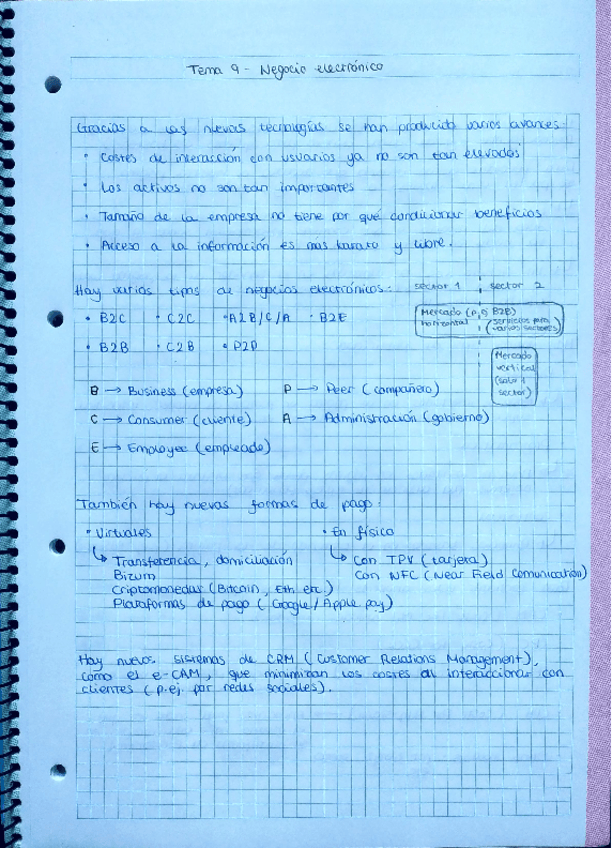 Tema 9 - Negocio electrónico
Gracias a las nuevas tecnologías se han producido varios avances:
· Costes de interacción con usuarios ya no son tan elevados
· Los activos no son tan importantes
· Tamaño de la empresa no tiene por qué condicionar beneficios
· Acceso a la información es mas barato y libre.
Hay varios tipos de negocios electrónicos: sector 1 sector 2
· B2C · C2C · A2B/C/A · B2E
· B2B · C2B · P2P
Mercado (p.ej B2B)
horizontal (servicios para
varios sectores)
Mercado
vertical
(solo 1
sector)
B → Business (empresa) P → Peer (compañero)
C → Consumer (cliente) A → Administración (gobierno)
E → Employee (empleado)
También hay nuevas formas de pago:
· Virtuales · En físico
↳ Transferencia, domiciliación ↳ Con TPV (tarjeta)
Bizum Con NFC (Near Field Comunication)
Criptomonedas (Bitcoin, Eth etc.)
Plataformas de pago (Google/Apple pay)
Hay nuevos sistemas de CRM (Customer Relations Management),
como el e-CAM, que minimizan los costes al interaccionar con
clientes (p.ej. por redes sociales).